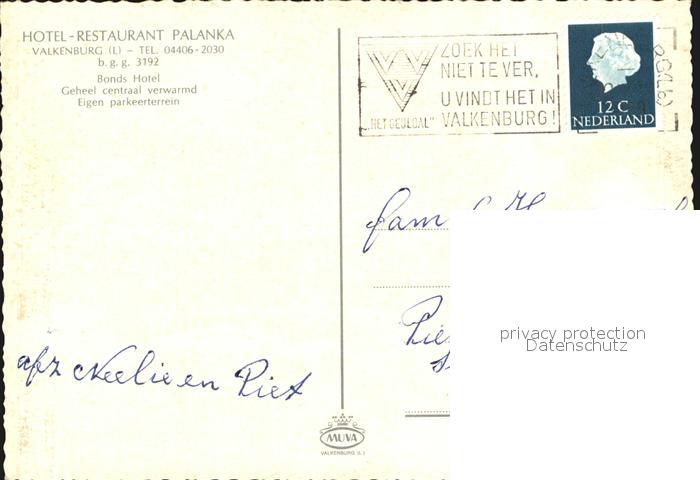 HOTEL-RESTAURANT PALANKA
VALKENBURG (L) – TEL. 04406-2030
b. g. g. 3192
Bonds Hotel
Geheel centraal verwarmd
Eigen parkeerterrein
ZOEK HET
NIET TE VER,
U VINDT HET IN
VALKENBURG!
„HET GEULDAL"
12 C
NEDERLAND
fam
afz Neelie en Piet
privacy protection
Datenschutz
MUVA
VALKENBURG (L)